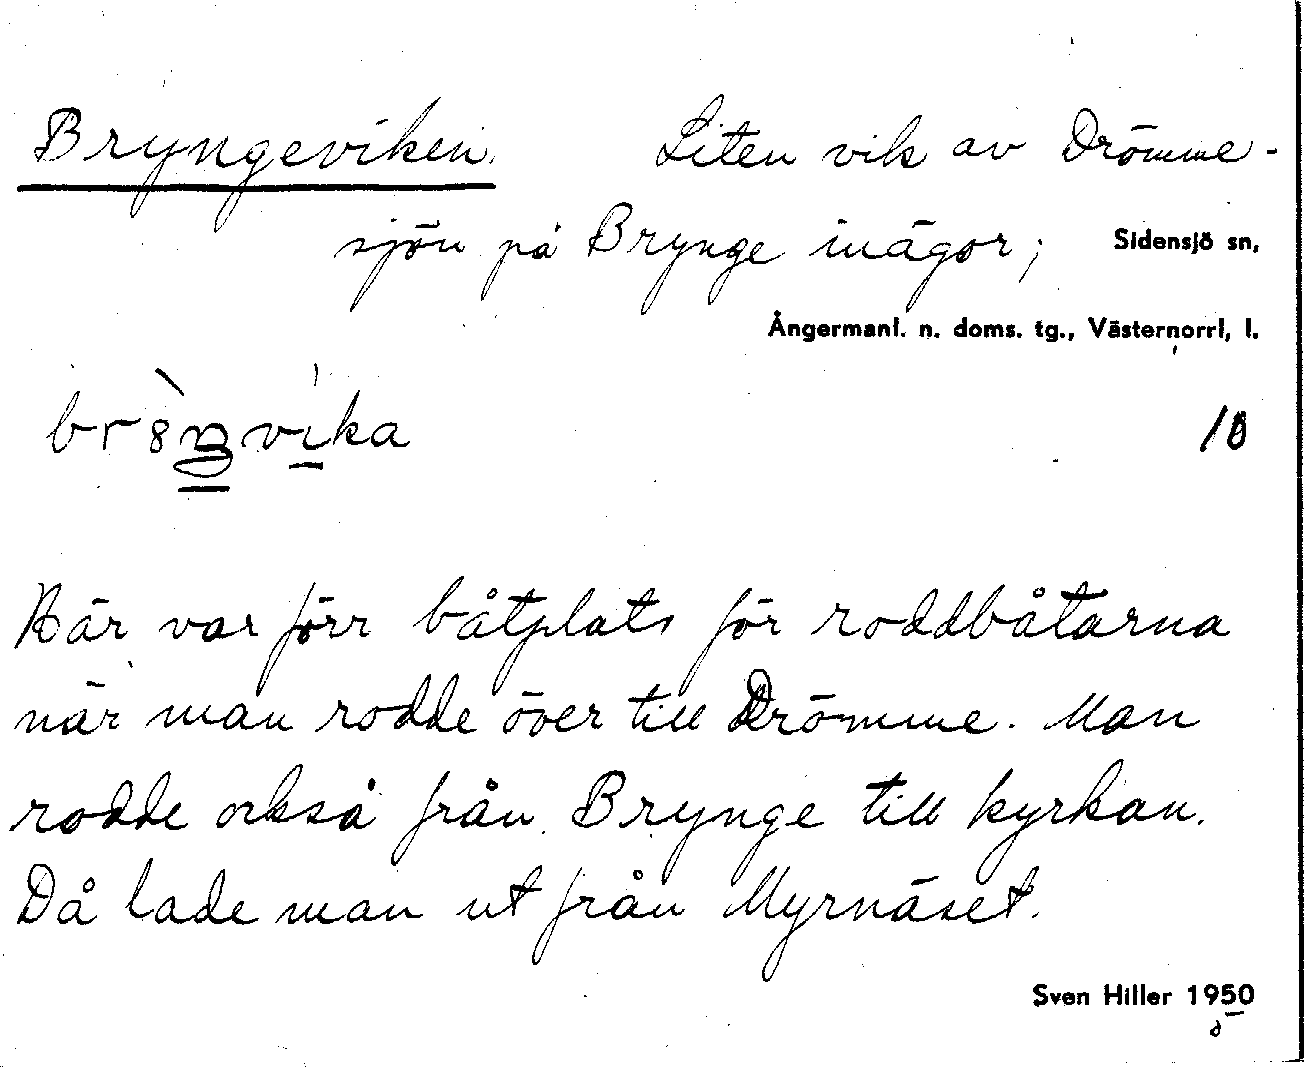 Bryngeviken. Liten vik av Drömme-
sjön på Brynge inägor; Sidensjö sn,
Ångermanl. n. doms. tg., Västernorrl, l.
10
Här var förr båtplats för roddbåtarna
när man rodde över till Drömme. Man
rodde också från Brynge till kyrkan.
Då lade man ut från Myrnäset.
Sven Hiller 1950